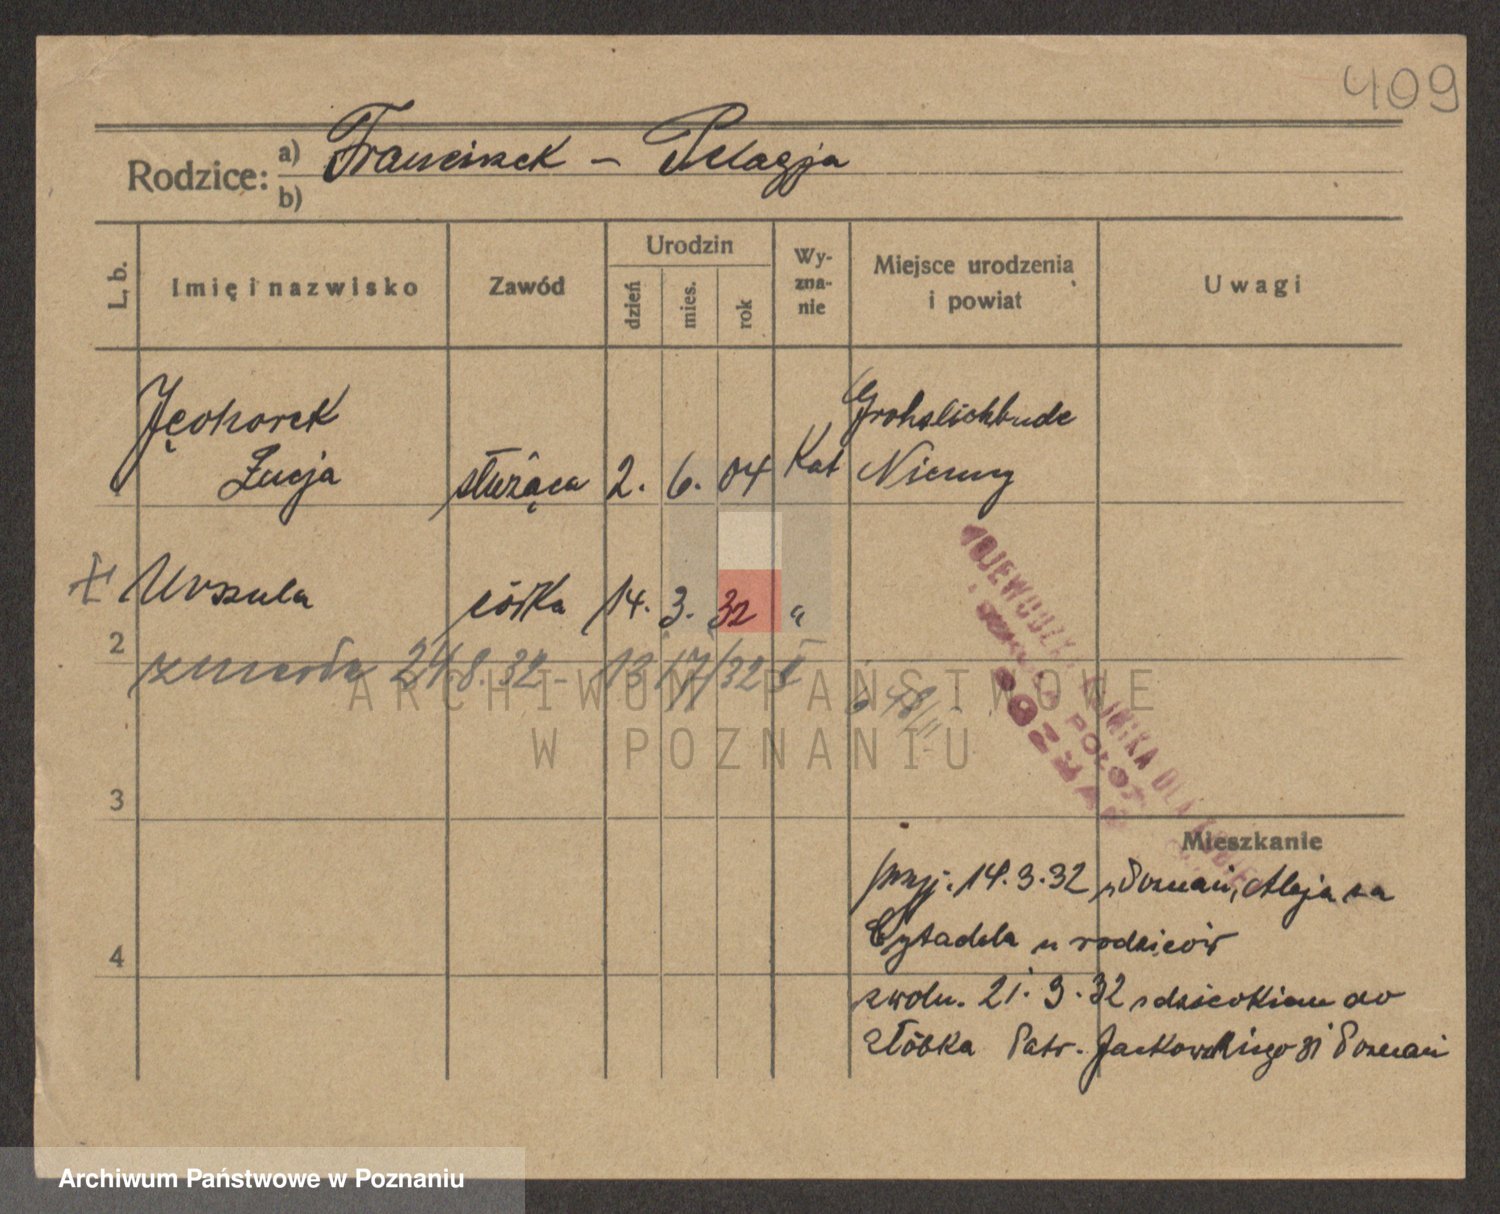 409
Rodzice: a) Franciszek – Pelagja
b)
L. b.
Imię i nazwisko
Zawód
Urodzin
dzień
mies.
rok
Wy-
zna-
nie
Miejsce urodzenia
i powiat
Uwagi
Jęchorek
Łucja
służąca
2. 6. 04
Kat
Grohslichbude
Niemcy
Urszula
córka
14. 3. 32
"
2
zmarła 24.8.32 -
ARCHIWUM PAŃSTWOWE
W POZNANIU
3
Mieszkanie
przyj. 14.3.32 Poznań, Aleja za
Cytadela u rodziców
4
zwoln. 21.3.32 z dzieckiem do
żłóbka Patr. Jackowskiego 31 Poznań
Archiwum Państwowe w Poznaniu